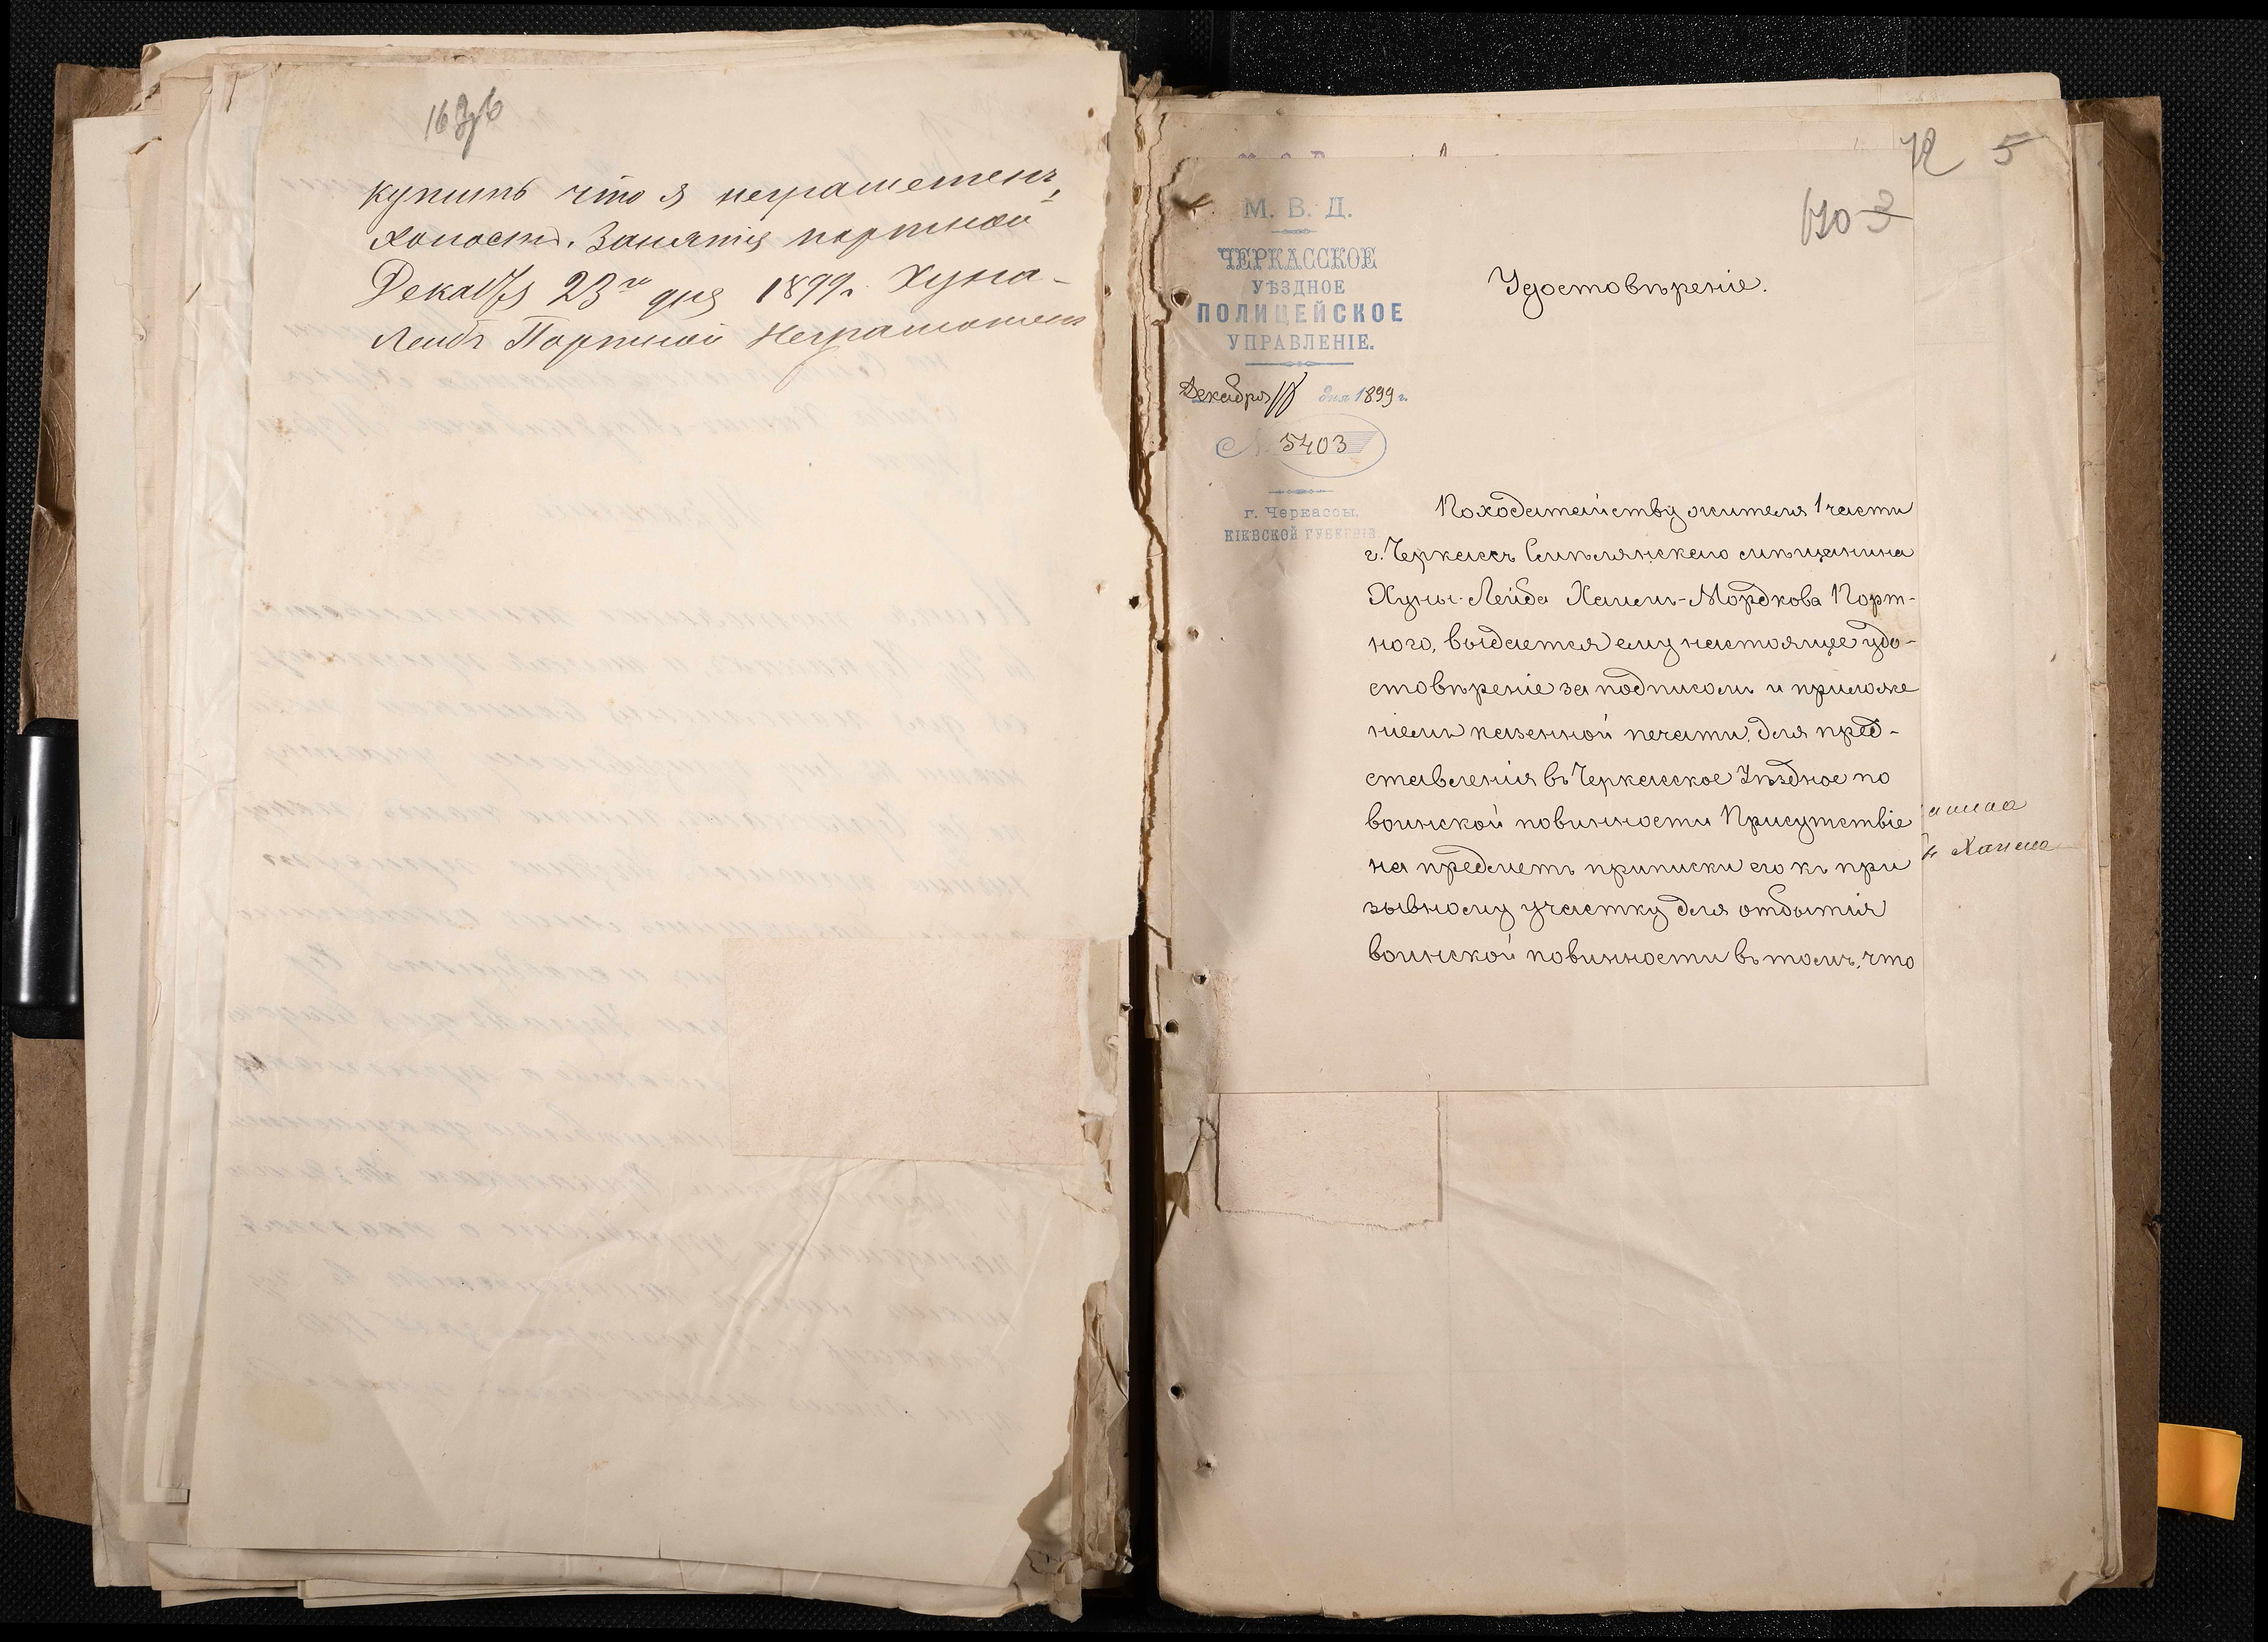 купить что я неграмотенъ,
холостъ. Занятія портной
Декабря 23го дня 1899г. Хуна-
Лейбъ Портной Неграмотенъ
72 5
М. В. Д.
ЧЕРКАССКОЕ
УѢЗДНОЕ
ПОЛИЦЕЙСКОЕ
УПРАВЛЕНІЕ.
Декабря дня 1899 г.
№ 5403
г. Черкассы,
КІЕВСКОЙ ГУБЕРНІИ.
Удостовѣреніе.
Походатайству жителя 1 части
г. Черкассъ Смѣлянскаго мѣщанина
Хуны-Лейба Хаимъ-Мордкова Порт-
ного, выдается ему настоящее удо-
стовѣреніе за подписомъ и приложе
ніемъ казенной печати, для пред-
ставленія въ Черкасское Уѣздное по
воинской повинности Присутствіе
на предметъ приписки его къ при
зывному участку для отбытія
воинской повинности въ томъ, что